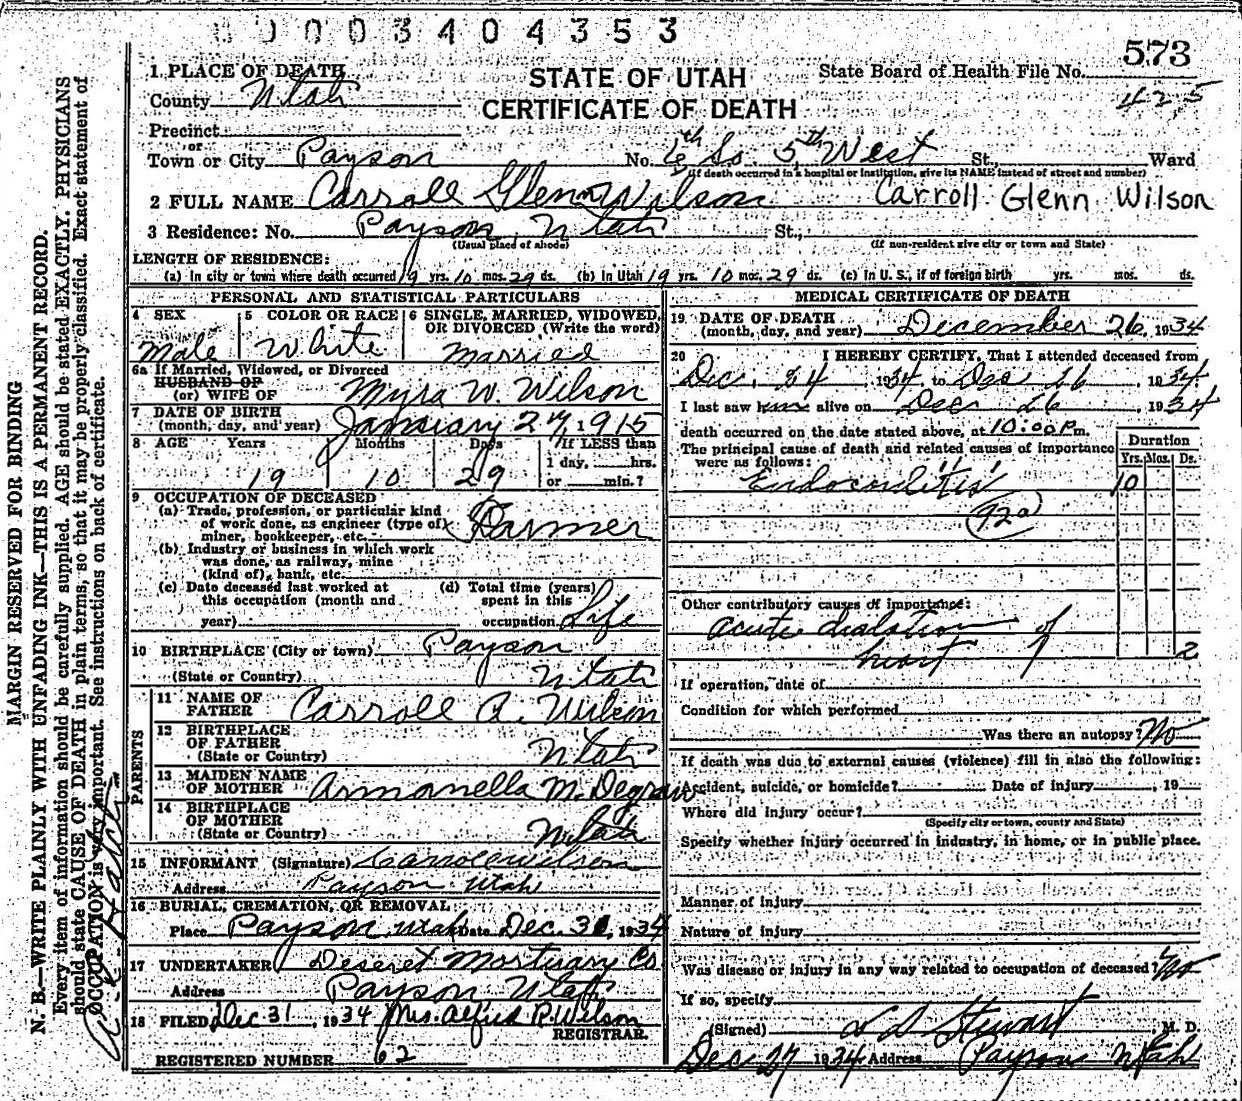 0003404353
573
1. PLACE OF DEATH
STATE OF UTAH
State Board of Health File No.
County Utah
CERTIFICATE OF DEATH
425
Precinct
or
Town or City Payson No. 6th So 5th West St., Ward
(If death occurred in a hospital or institution, give its NAME instead of street and number)
2 FULL NAME Carroll Glenn Wilson Carroll Glenn Wilson
3 Residence: No. Payson, Utah St.,
(Usual place of abode) (If non-resident give city or town and State)
LENGTH OF RESIDENCE:
(a) In city or town where death occurred 19 yrs. 10 mos. 29 ds. (b) In Utah 19 yrs. 10 mos. 29 ds. (c) In U. S., if of foreign birth yrs. mos. ds.
PERSONAL AND STATISTICAL PARTICULARS
4 SEX 5 COLOR OR RACE 6 SINGLE, MARRIED, WIDOWED, OR DIVORCED (Write the word)
Male White Married
6a If Married, Widowed, or Divorced
HUSBAND OF
(or) WIFE OF Myra W. Wilson
7 DATE OF BIRTH
(month, day, and year) January 27, 1915
8 AGE Years Months Days If LESS than
1 day, hrs.
19 10 29 or min.?
9 OCCUPATION OF DECEASED
(a) Trade, profession, or particular kind
of work done, as engineer (type of)
miner, bookkeeper, etc. Farmer
(b) Industry or business in which work
was done, as railway, mine
(kind of), bank, etc.
(c) Date deceased last worked at
this occupation (month and
year)
(d) Total time (years)
spent in this
occupation Life
10 BIRTHPLACE (City or town) Payson
(State or Country) Utah
PARENTS
11 NAME OF
FATHER Carroll A. Wilson
12 BIRTHPLACE
OF FATHER
(State or Country) Utah
13 MAIDEN NAME
OF MOTHER Armanella M. Degraw
14 BIRTHPLACE
OF MOTHER
(State or Country) Utah
15 INFORMANT (Signature) Carroll Wilson
Address Payson Utah
16 BURIAL, CREMATION, OR REMOVAL:
Place Payson, Utah Date Dec. 31, 1934
17 UNDERTAKER Deseret Mortuary Co
Address Payson Utah
18 FILED Dec 31, 1934 Mrs. Alfred R. Wilson
REGISTRAR.
REGISTERED NUMBER 62
MEDICAL CERTIFICATE OF DEATH
19 DATE OF DEATH
(month, day, and year) December 26, 1934
20 I HEREBY CERTIFY, That I attended deceased from
Dec. 24 1934, to Dec 26, 1934.
I last saw him alive on Dec 26, 1934
death occurred on the date stated above, at 10:00 P.m.
The principal cause of death and related causes of importance
were as follows:
Duration
Yrs. Mos. Ds.
Endocarditis 10
92a
Other contributory causes of importance:
Acute dialation of
heart 2
If operation, date of
Condition for which performed
Was there an autopsy? No
If death was due to external causes (violence) fill in also the following:
Accident, suicide, or homicide? Date of injury , 19
Where did injury occur?
(Specify city or town, county and State)
Specify whether injury occurred in industry, in home, or in public place.
Manner of injury
Nature of injury
Was disease or injury in any way related to occupation of deceased? No
If so, specify
(Signed) L D Stewart, M. D.
Dec 27 1934 Address Payson Utah
MARGIN RESERVED FOR BINDING
N. B.—WRITE PLAINLY WITH UNFADING INK—THIS IS A PERMANENT RECORD.
Every item of information should be carefully supplied. AGE should be stated EXACTLY. PHYSICIANS
should state CAUSE OF DEATH in plain terms, so that it may be properly classified. Exact statement of
OCCUPATION is very important. See instructions on back of certificate.